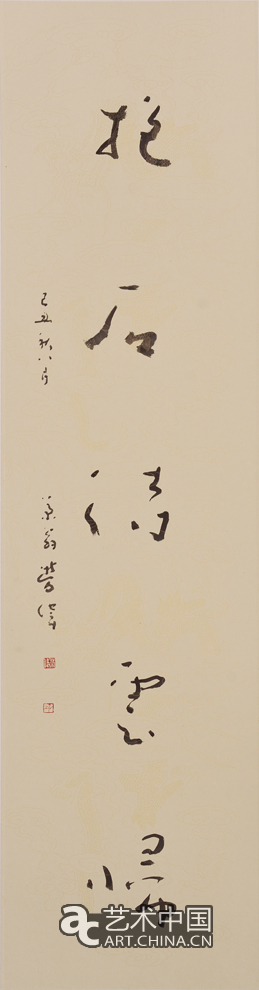 抱石待雲歸
己丑秋八月
艺术中国
ART.CHINA.CN